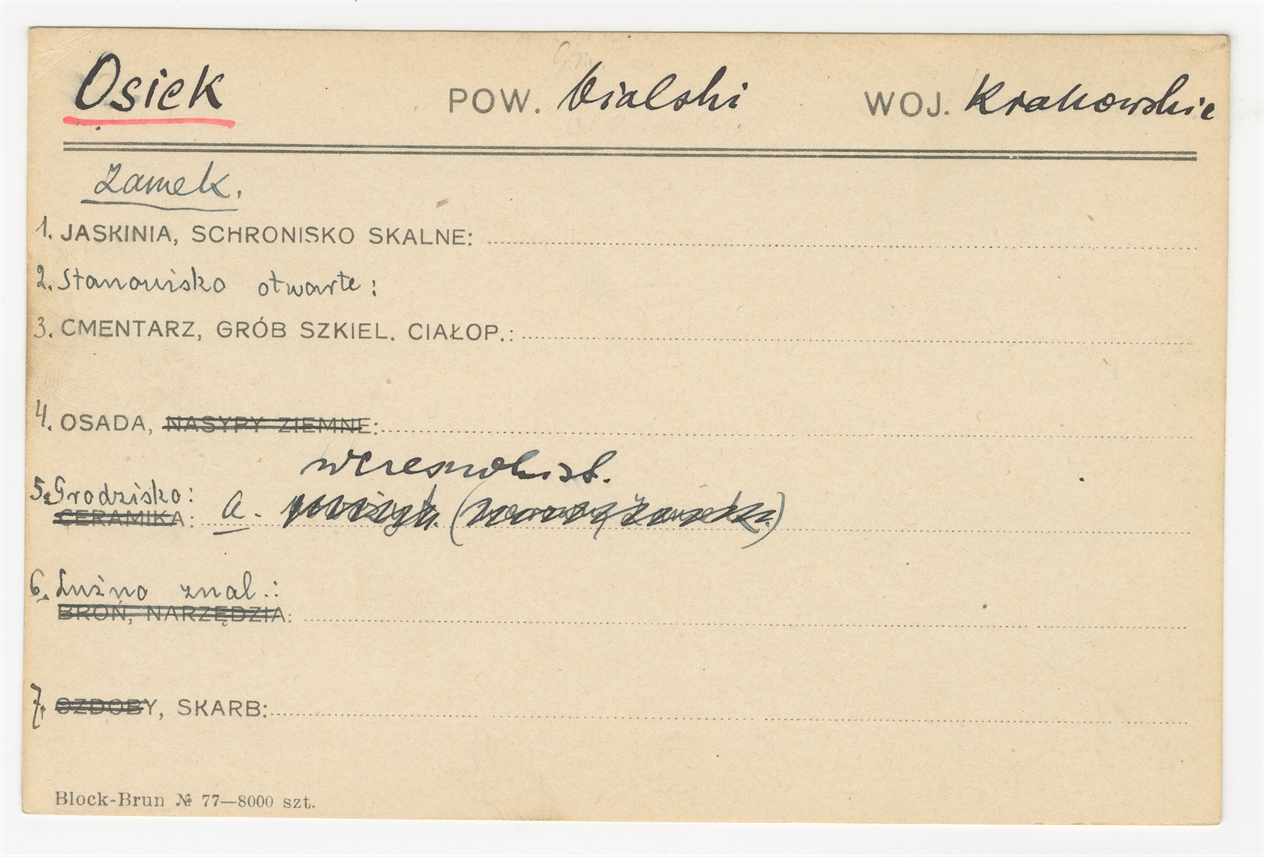 Osiek POW. bialski WOJ. Krakowskie
Zamek.
1. JASKINIA, SCHRONISKO SKALNE:
2. Stanowisko otwarte:
3. CMENTARZ, GRÓB SZKIEL. CIAŁOP.:
4. OSADA, NASYPY ZIEMNE:
wczesnohist.
5. Grodzisko:
CERAMIKA: a.
6. Luźno znal.:
BROŃ, NARZĘDZIA:
7. OZDOBY, SKARB:
Block-Brun № 77—8000 szt.